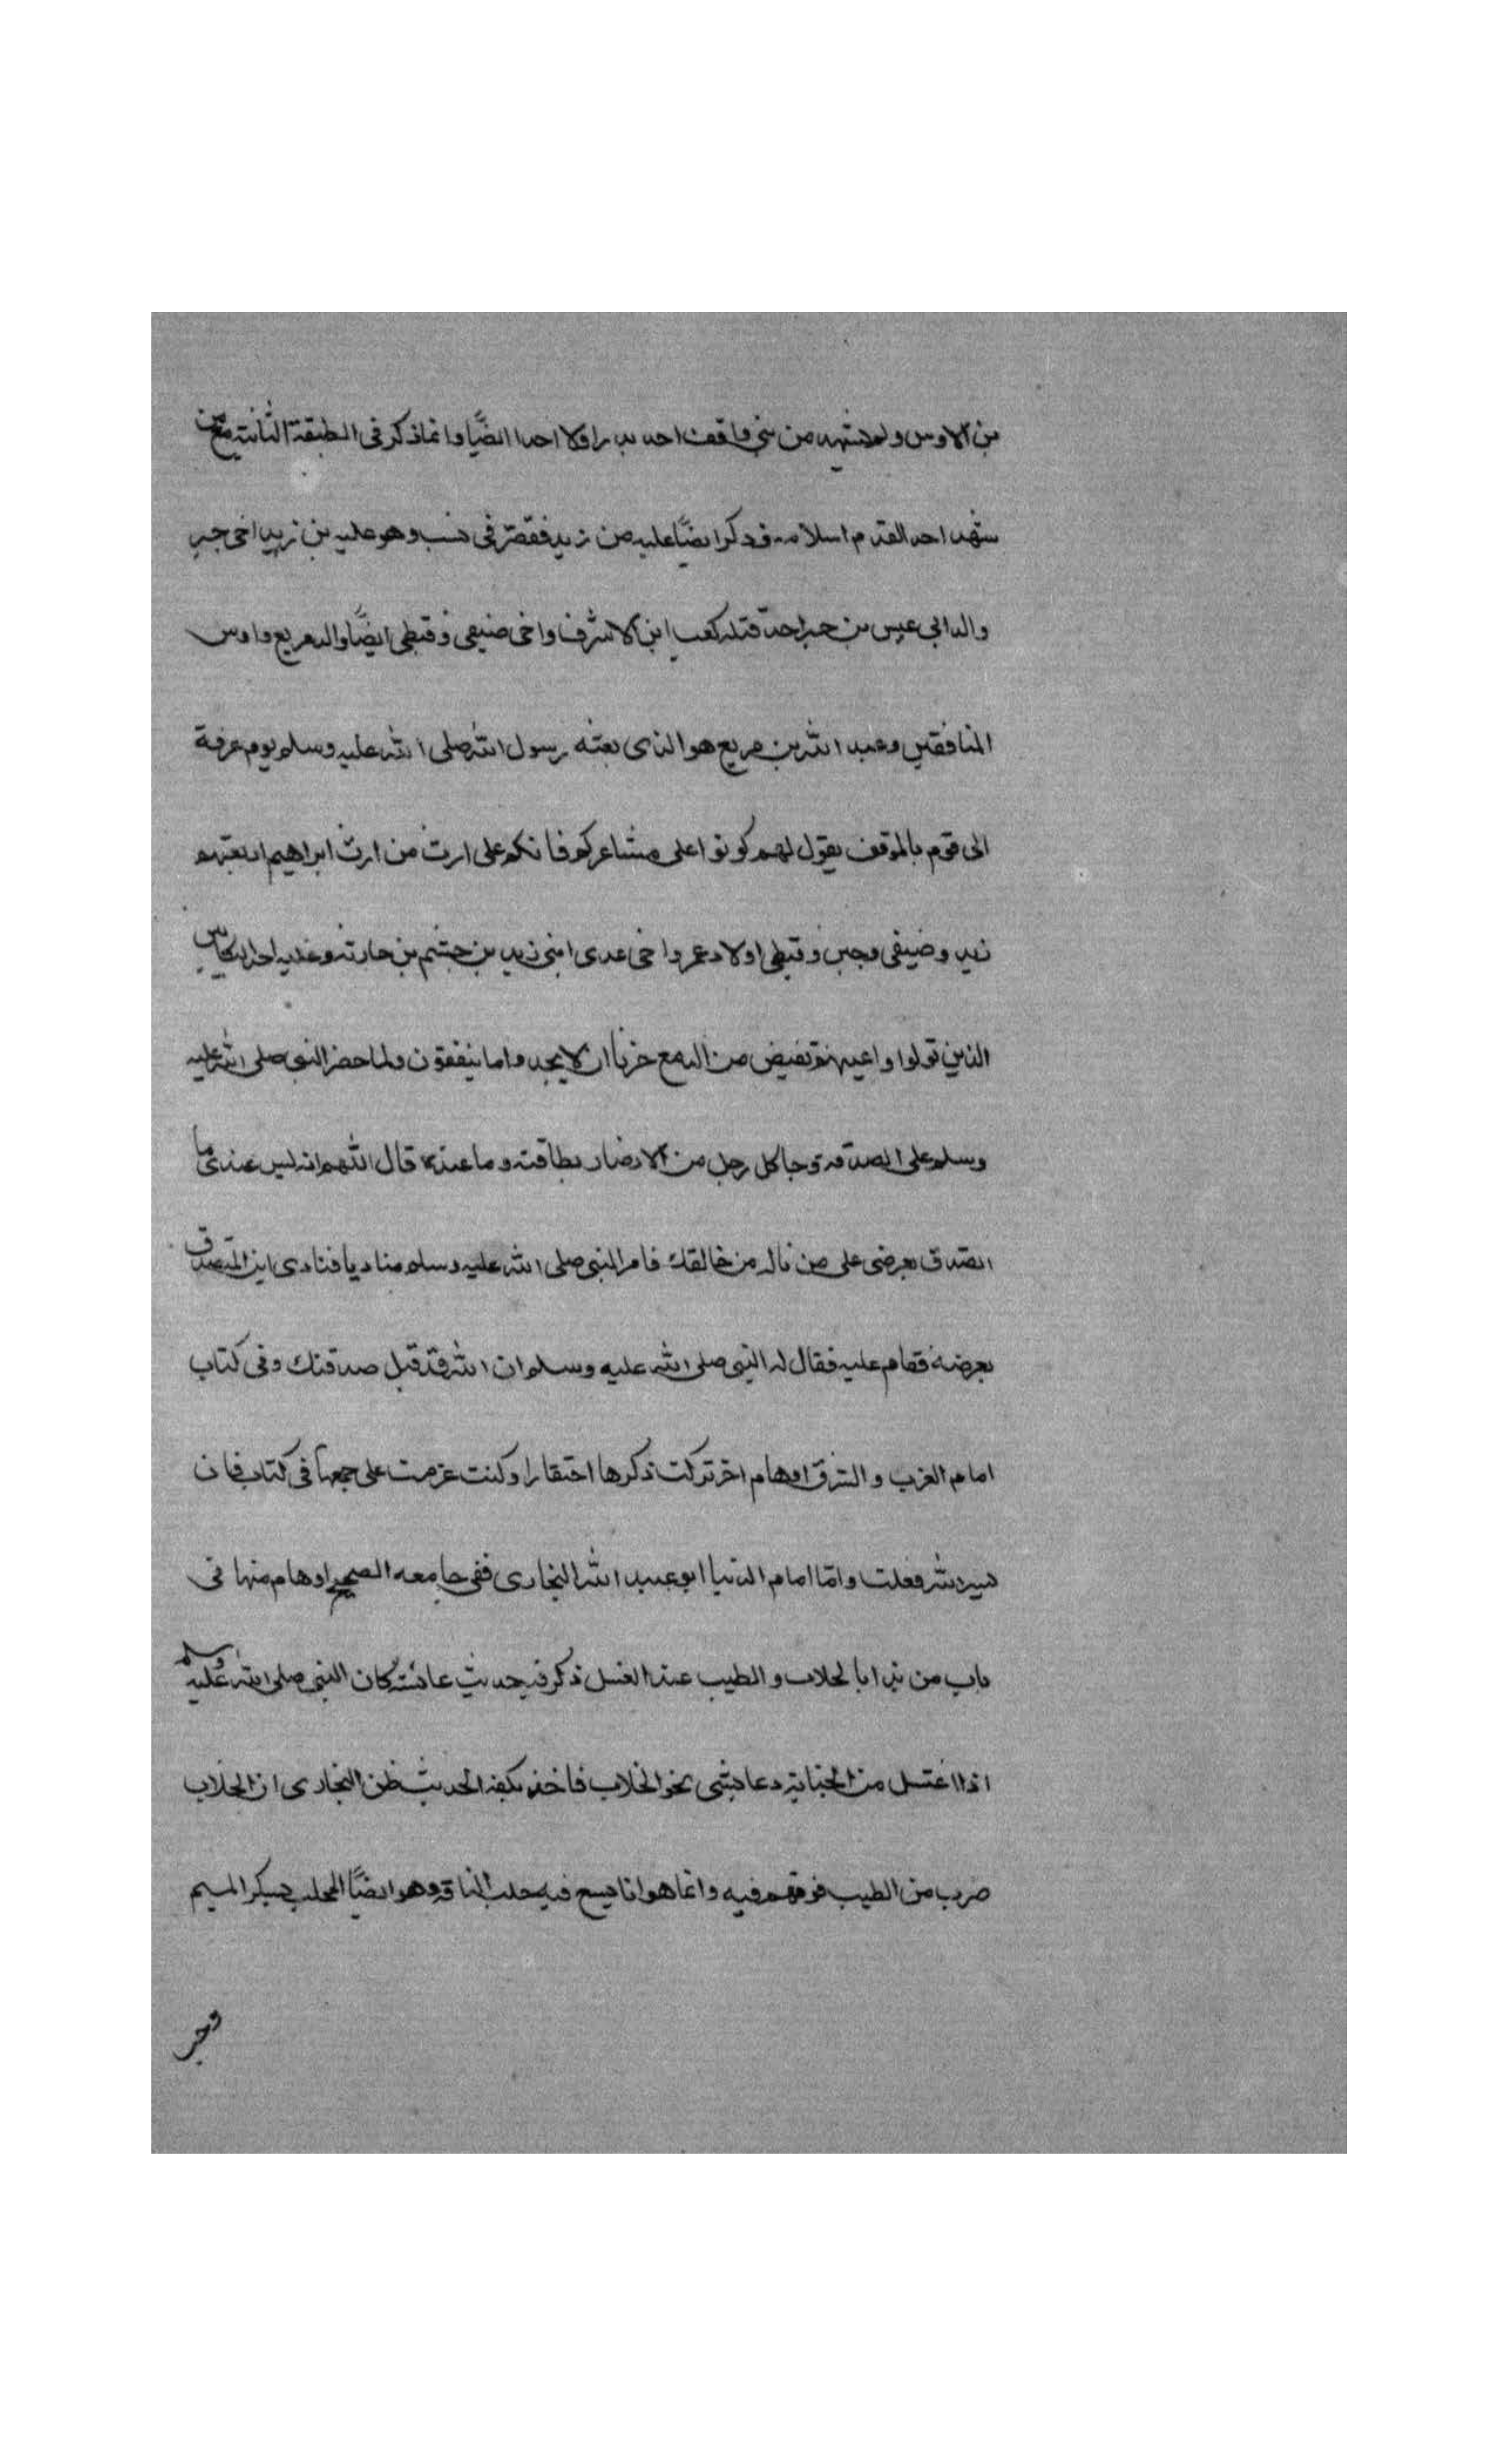 بن الاوس ولم يشهد من بني واقف احد بدرا ولا احدا ايضًا وانما ذكر في الطبقة الثانية ممن
شهد احد القدم اسلامه وذكر ايضًا علبه من زيد فقصر في نسبه وهو علبه بن زيد اخي جبر
والد ابي عبس بن جبر احد قتلة كعب ابن الاشرف واخى ضيفى وقبطى ايضًا والد مربع واوس
المنافقين وعبد الله بن مربع هو الذى بعثه رسول الله صلى الله عليه وسلم يوم عرفة
الى قوم بالموقف يقول لهم كونوا على مشاعركم فانكم على ارث من ارث ابراهيم اربعتهم
زيد وضيفى وجبر وقبطى اولاد عمرو اخى عدى ابنى زيد بن جشم بن حارثه وعلبه احد البكايين
الذين تولوا واعينهم تفيض من الدمع حزنا ان لا يجدوا ما ينفقون ولما حضر النبي صلى الله عليه
وسلم على الصدقه وجا كل رجل من الانصار بطاقته وما عنده قال اللهم انه ليس عندى ما
اتصدق بعرضى على من ناله من خالقك فامر النبي صلى الله عليه وسلم مناديا فنادى اين المتصدق
بعرضه فقام عليه فقال له النبي صلى الله عليه وسلم ان الله قد قبل صدقتك وفى كتاب
امام الغرب والشرق اوهام اخر تركت ذكرها احتقارا وكنت عزمت على جمعها في كتاب فان
يسر الله فعلت واما امام الدنيا ابو عبد الله البخارى ففى جامعه الصحيح اوهام منها فى
باب من بدا بالحلاب والطيب عند الغسل ذكر فيه حديث عائشة كان النبي صلى الله عليه وسلم
اذا اغتسل من الجنابة دعا بشى نحو الحلاب فاخذ بكفه الحديث ظن البخارى ان الحلاب
ضرب من الطيب فوهم فيه وانما هو انا يسع فيه حلب الناقة وهو ايضًا المحلب بكسر الميم